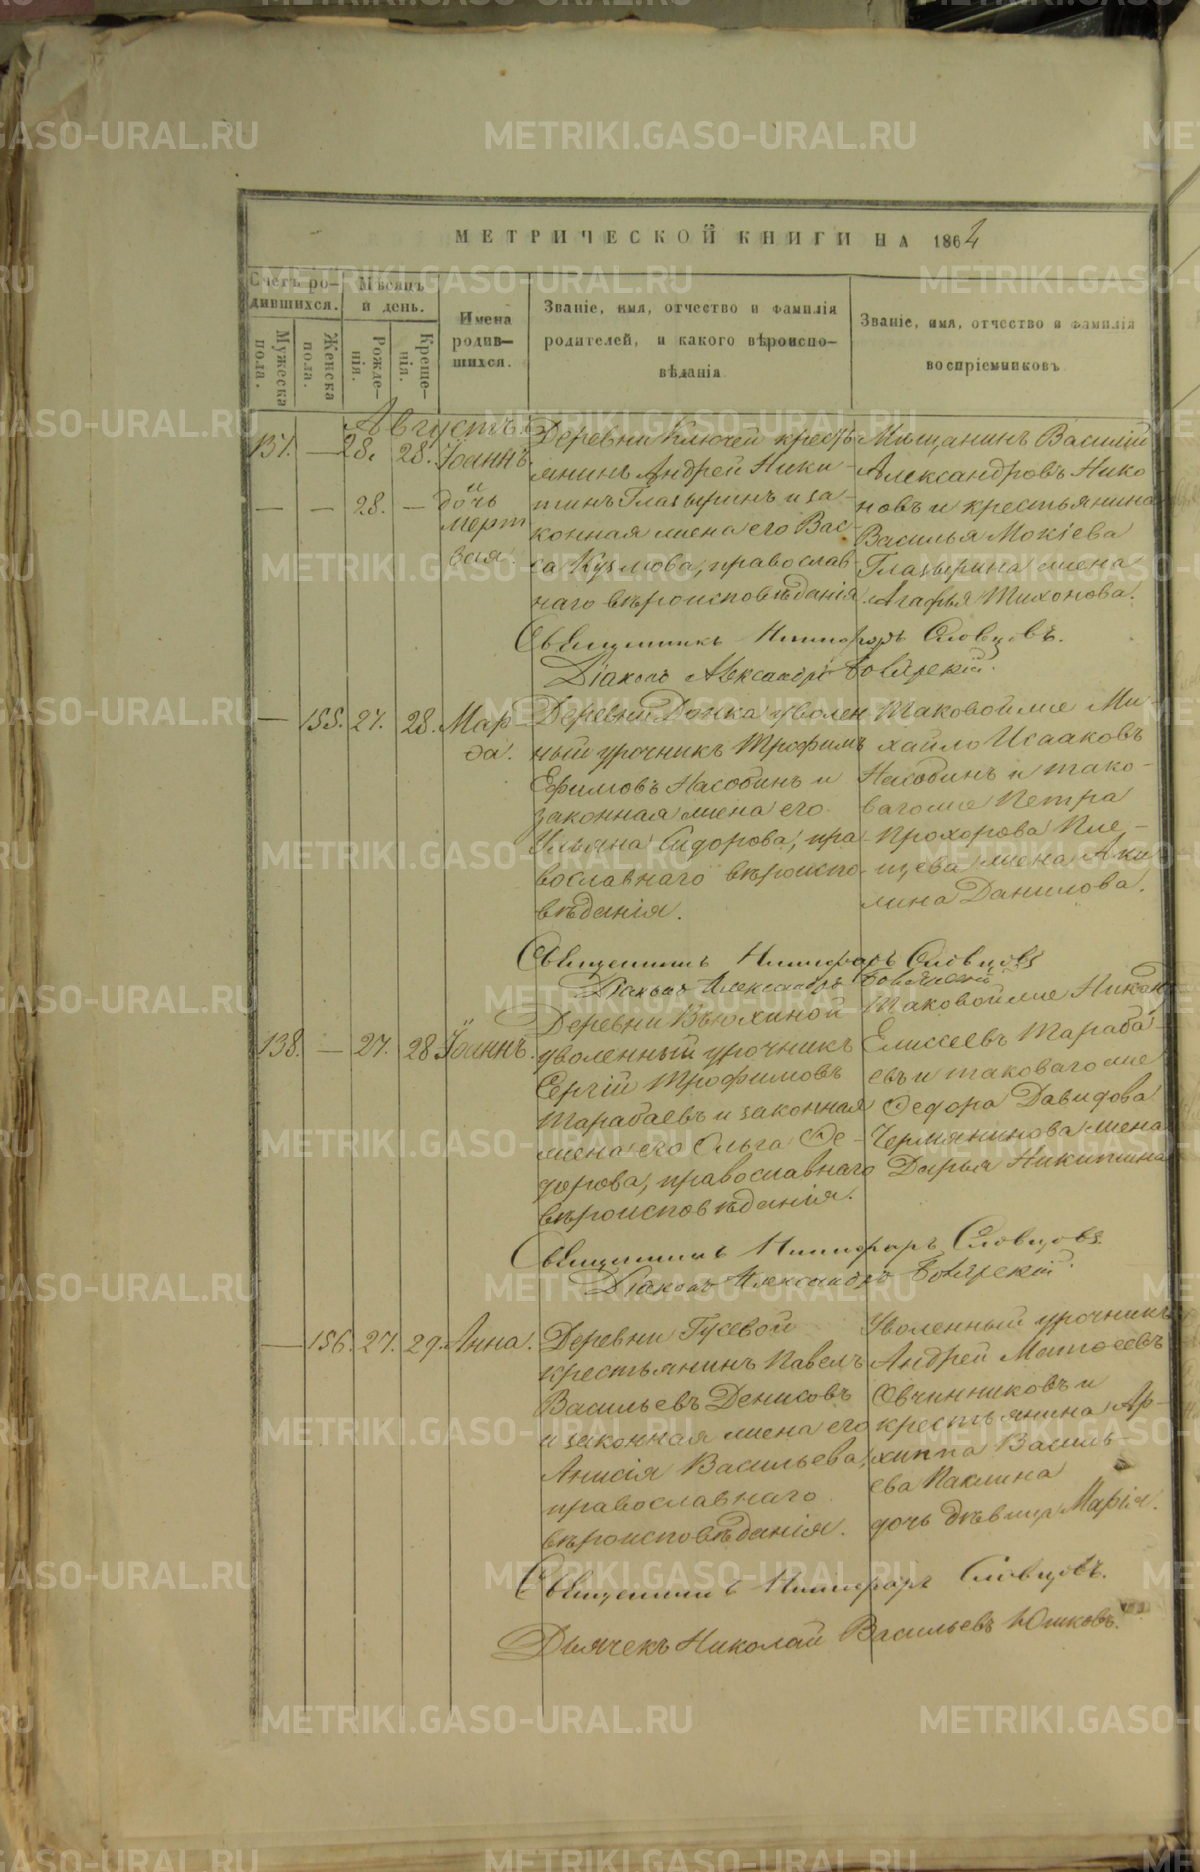 МЕТРИЧЕСКОЙ КНИГИ НА 1864
Счетъ ро-
дившихся.
Мѣсяцъ
и день.
Имена
родив-
шихся.
Званіе, имя, отчество и фамилія
родителей, и какого вѣроиспо-
вѣданія
Званіе, имя, отчество и фамилія
воспріемниковъ
Мужеска
пола.
Женска
пола.
Рожде-
нія.
Креще-
нія.
Августъ
137. — 28. 28. Іоаннъ
— — 28. —
и
дочь
мерт
вая.
Деревни Ключей кресть-
янинъ Андрей Ники-
тинъ Глазыринъ и за-
конная жена его Вас-
са Кузмова, православ-
наго вѣроисповѣданія.
Мѣщанинъ Василій
Александровъ Нико
новъ и крестьянина
Василья Мокіева
Глазырина жена
Агафья Тихонова.
Священникъ Никифоръ Словцовъ.
Діаконъ Александръ Боярскій.
— 155. 27. 28. Мар-
ѳа.
Деревни Донка уволен
ный урочникъ Трофимъ
Ефимовъ Насобинъ и
законная жена его
Ульяна Сидорова, пра-
вославнаго вѣроиспо-
вѣданія.
Таковой же Ми-
хайло Исааковъ
Насобинъ и тако-
ваго же Петра
Прохорова Пле-
щева жена Аки-
лина Данилова.
Священникъ Никифоръ Словцовъ
Діаконъ Александръ Боярскій
138. — 27. 28 Іоаннъ.
Деревни Вьюхиной
уволенный урочникъ
Сергій Трофимовъ
Тарабаевъ и законная
жена его Ольга Ѳе-
дорова, православнаго
вѣроисповѣданія.
Таковой же Никан
Елисеевъ Тараба-
евъ и таковаго же
Ѳедора Давидова
Чермянинова жена
Дарья Никитина
Священникъ Никифоръ Словцовъ.
Діаконъ Александръ Боярскій.
— 156. 27. 29. Анна.
Деревни Гусевой
крестьянинъ Павелъ
Васильевъ Денисовъ
и законная жена его
Анисія Васильева,
православнаго
вѣроисповѣданія.
Уволенный урочникъ
Андрей Матѳеевъ
Овчинниковъ и
крестьянина Ар-
хиппа Василь-
ева Паклина
дочь дѣвица Марія.
Священникъ Никифоръ Словцовъ.
Дьячекъ Николай Васильевъ Юшковъ.
METRIKI.GASO-URAL.RU